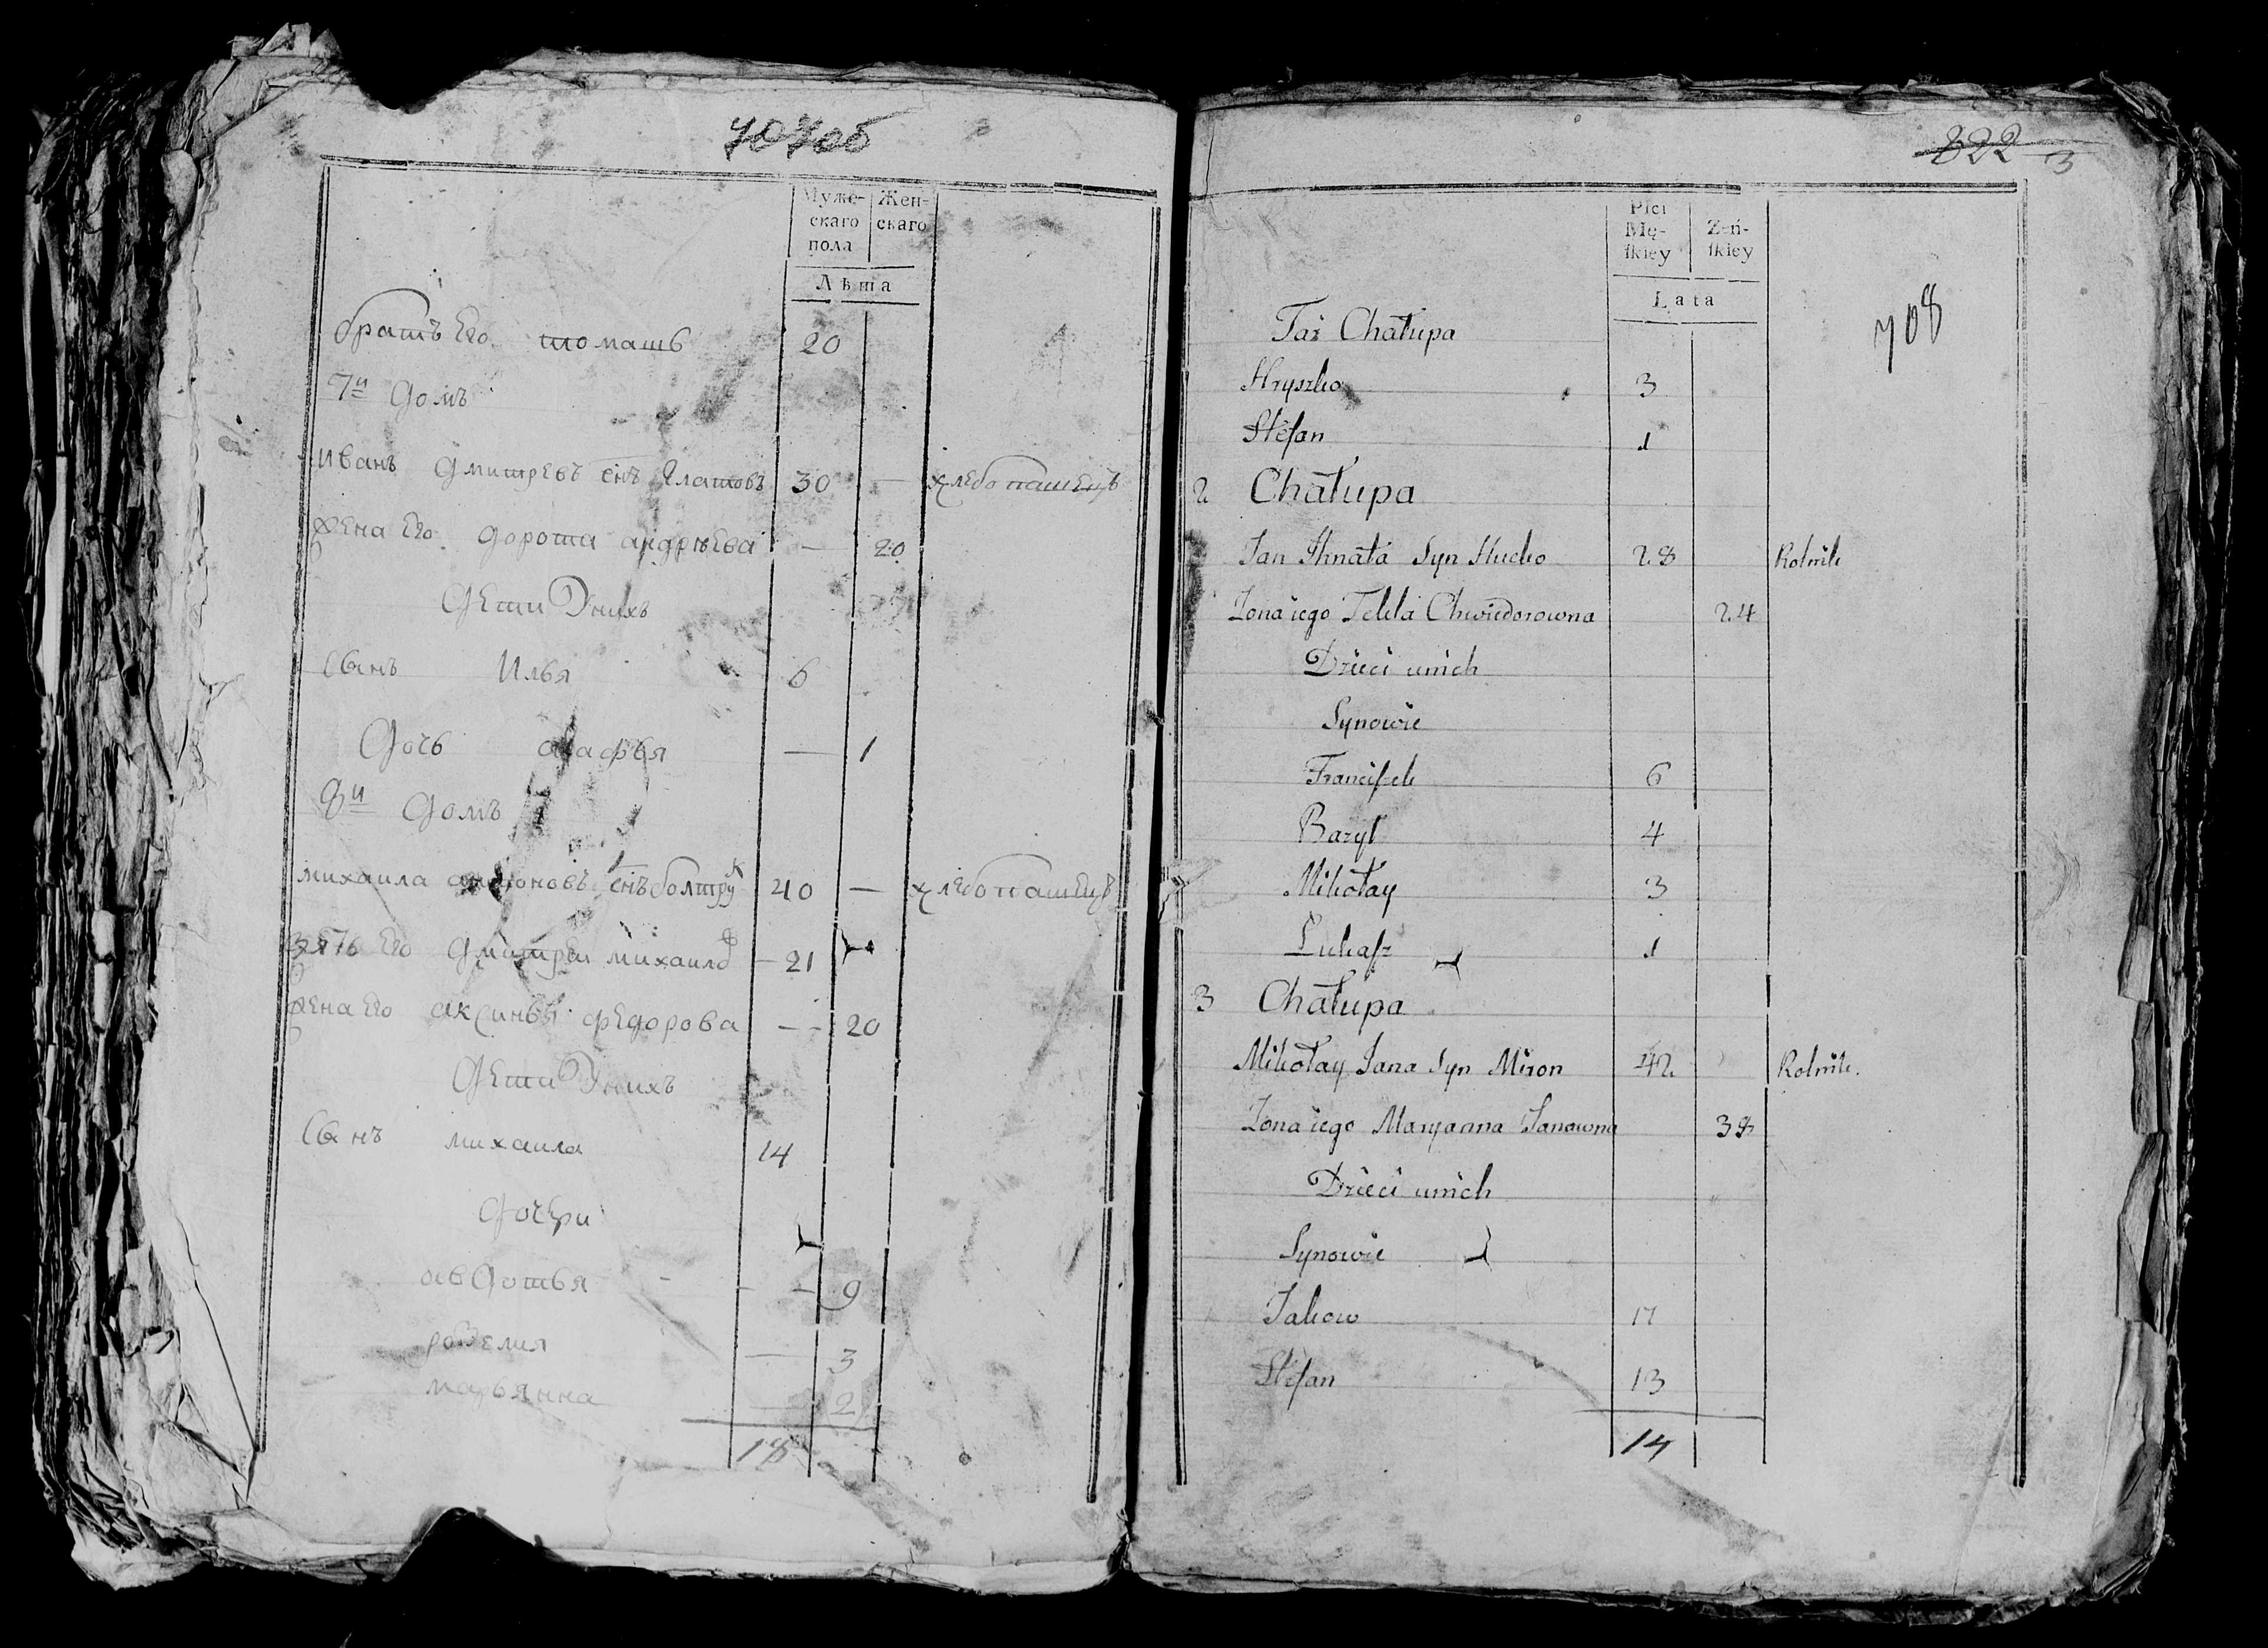 707об
Муже-скаго пола Жен-скаго
Лѣта
братъ Его томашъ 20
7и домъ
иванъ дмитревъ снъ Глатовъ 30 — хлебопашецъ
жена Его дорота андрѣева — 20
дети У нихъ
сынъ Илья 6
дочь агафья — 1
8и домъ
михаила антоновъ снъ болтрук 40 — хлебопашецъ
зять Его дмитрей михаилов 21
жена Его аксинья федорова — 20
дети У нихъ
сынъ михаила 14
дочери
авдотья — 9
розелия — 3
марьянна — 2
18
322
3
708
Płci Mę-skiey Żeń-skiey
Lata
Taż Chałupa
Hryszko 3
Stefan 1
2 Chałupa
Jan Ihnata Syn Hucko 28 Rolnik
Żona iego Tekla Chwiedorowna 24
Dzieci unich
Synowie
Franciszek 6
Bazyl 4
Mikołay 3
Łukasz 1
3 Chałupa
Mikołay Jana Syn Miron 42 Rolnik.
Żona iego Maryanna Janowna 38
Dzieci unich
Synowie
Jakow 17
Stefan 13
14